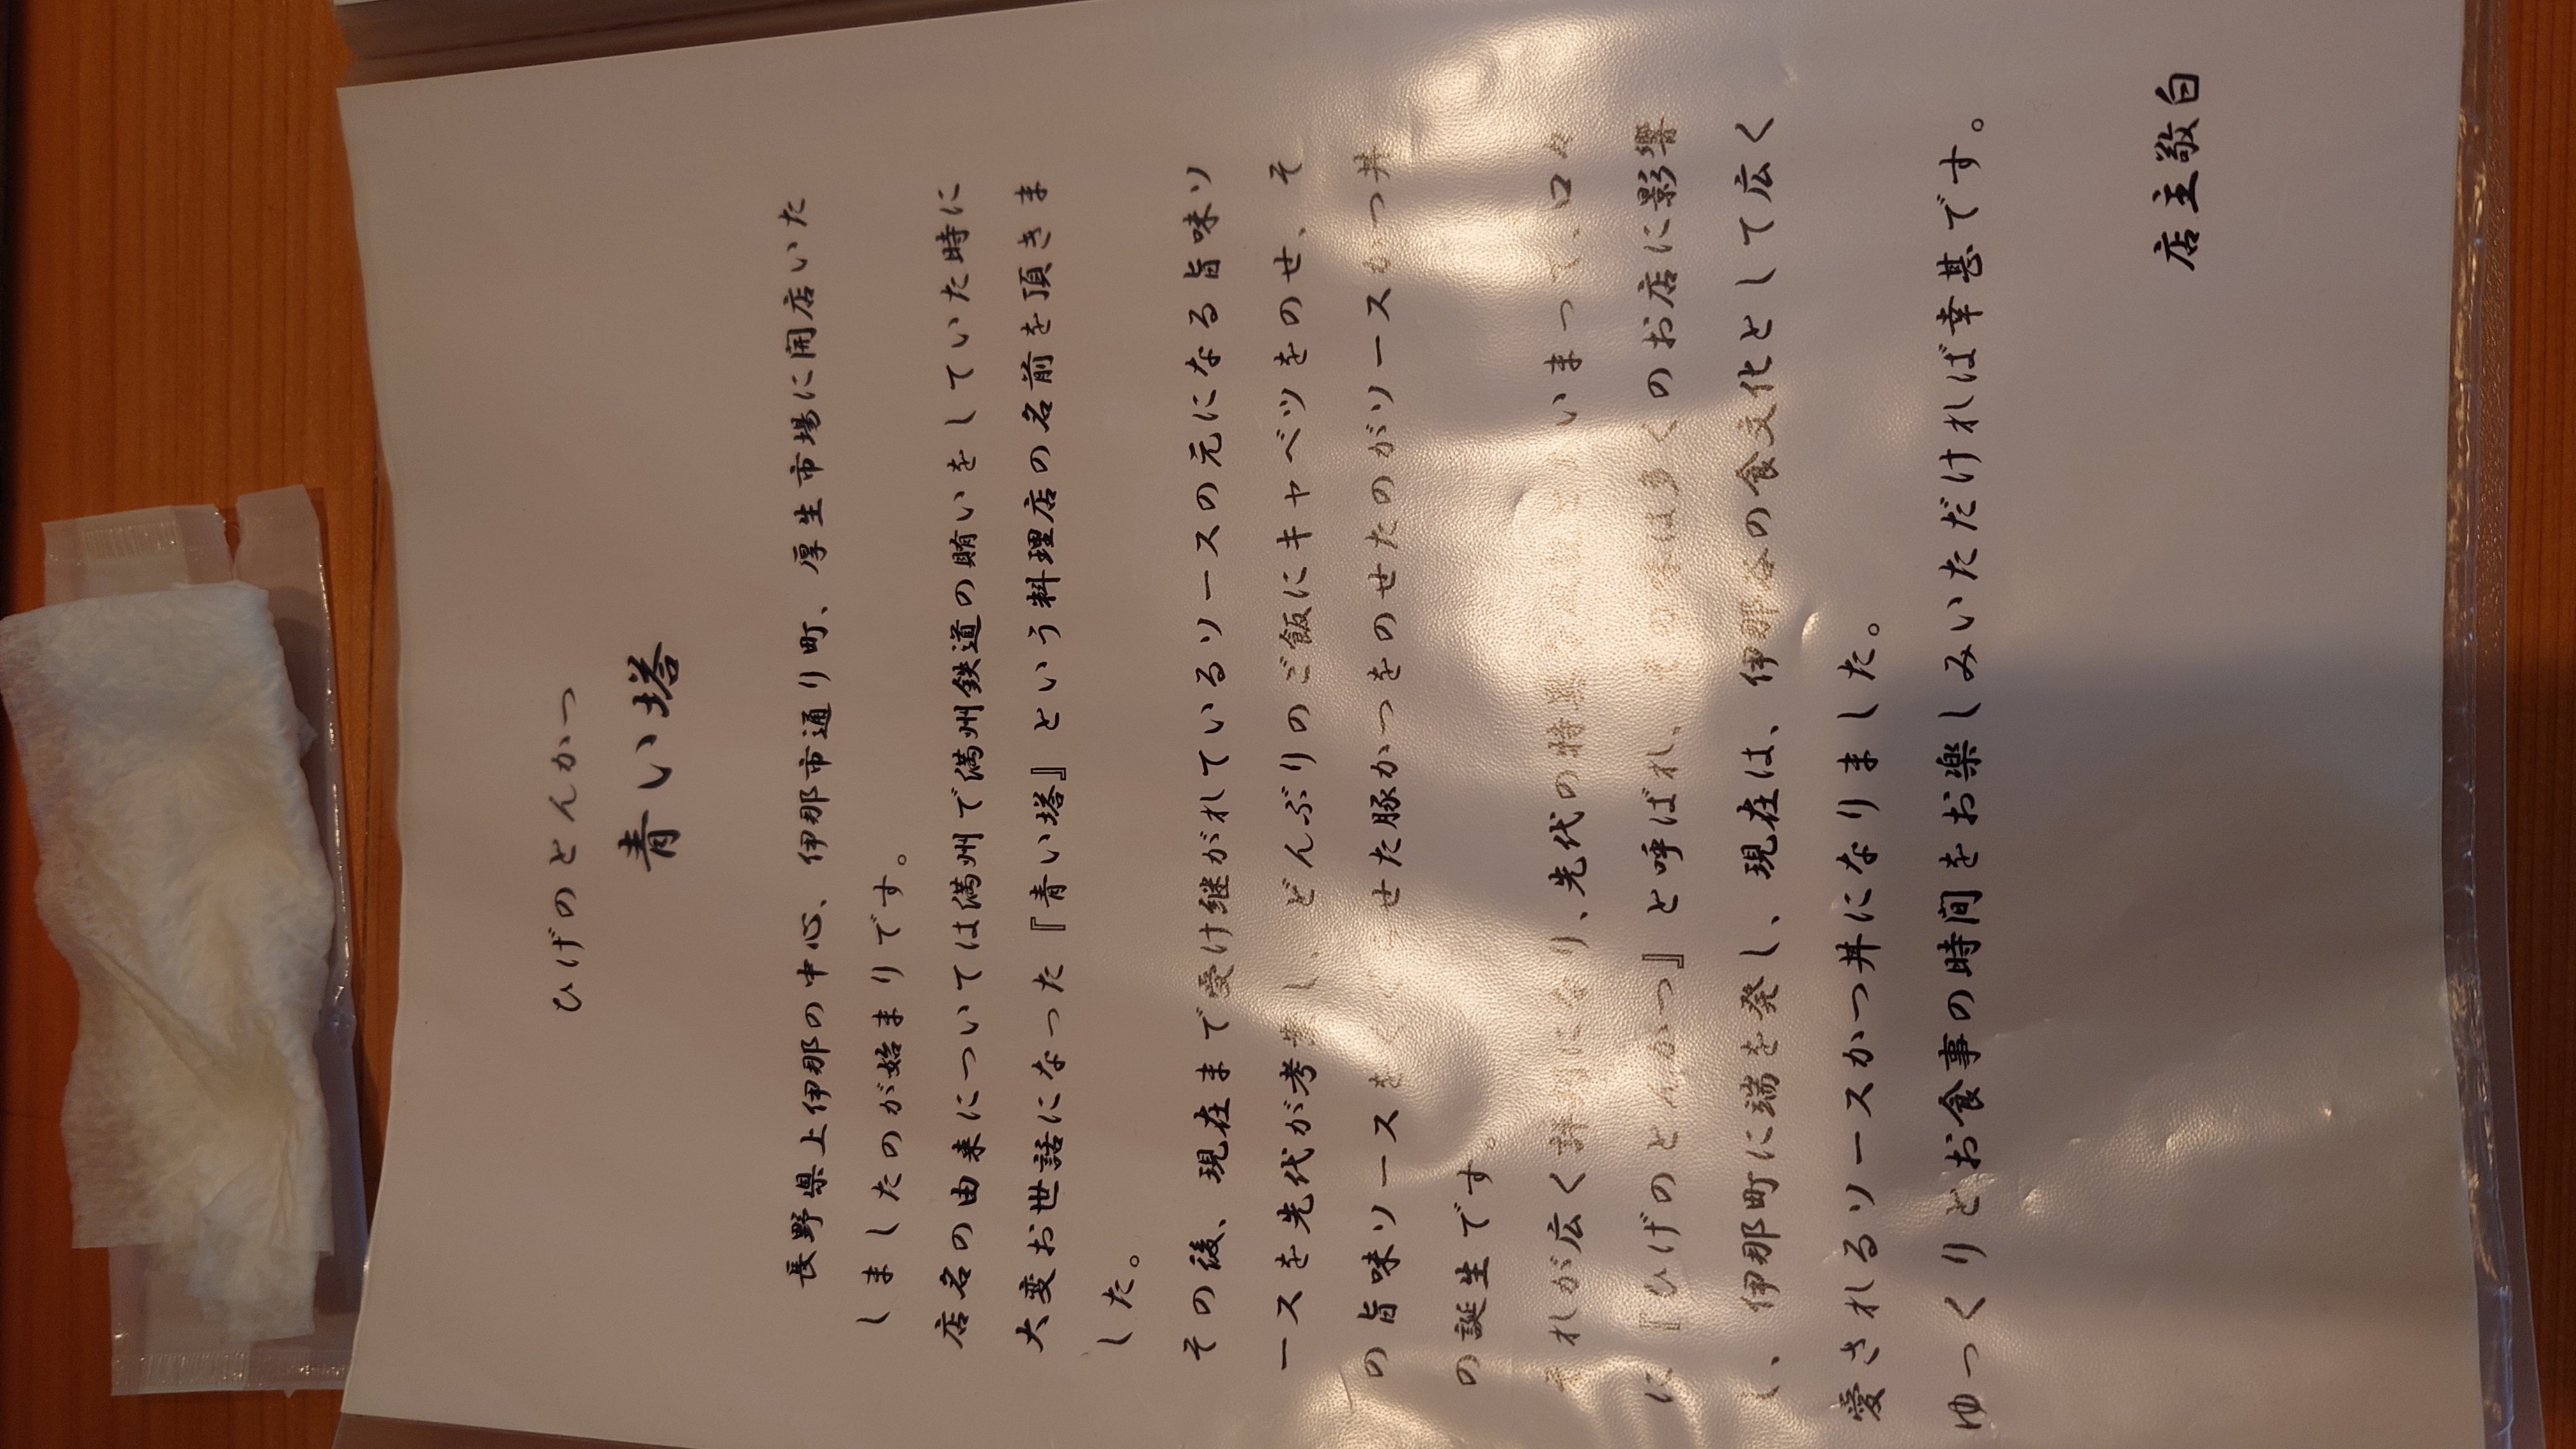 ひげのとんかつ
青い塔
長野県上伊那の中心、伊那市通り町、厚生市場に開店いた
しましたのが始まりです。
店名の由来については満州で満州鉄道の賄いをしていた時に
大変お世話になった『青い塔』という料理店の名前を頂きま
した。
その後、現在まで受け継がれているソースの元になる旨味ソ
ースを先代が考 し、どんぶりのご飯にキャベツをのせ、そ
の旨味ソースを せた豚かつをのせたのがソースかつ丼
の誕生です。
それが広く評判になり、先代の特 いまって、口々
に『ひげのとんかつ』と呼ばれ、 味は多くのお店に影響
し、伊那町に端を発し、現在は、伊那谷の食文化として広く
愛されるソースかつ丼になりました。
ゆっくりとお食事の時間をお楽しみいただければ幸甚です。
店主敬白